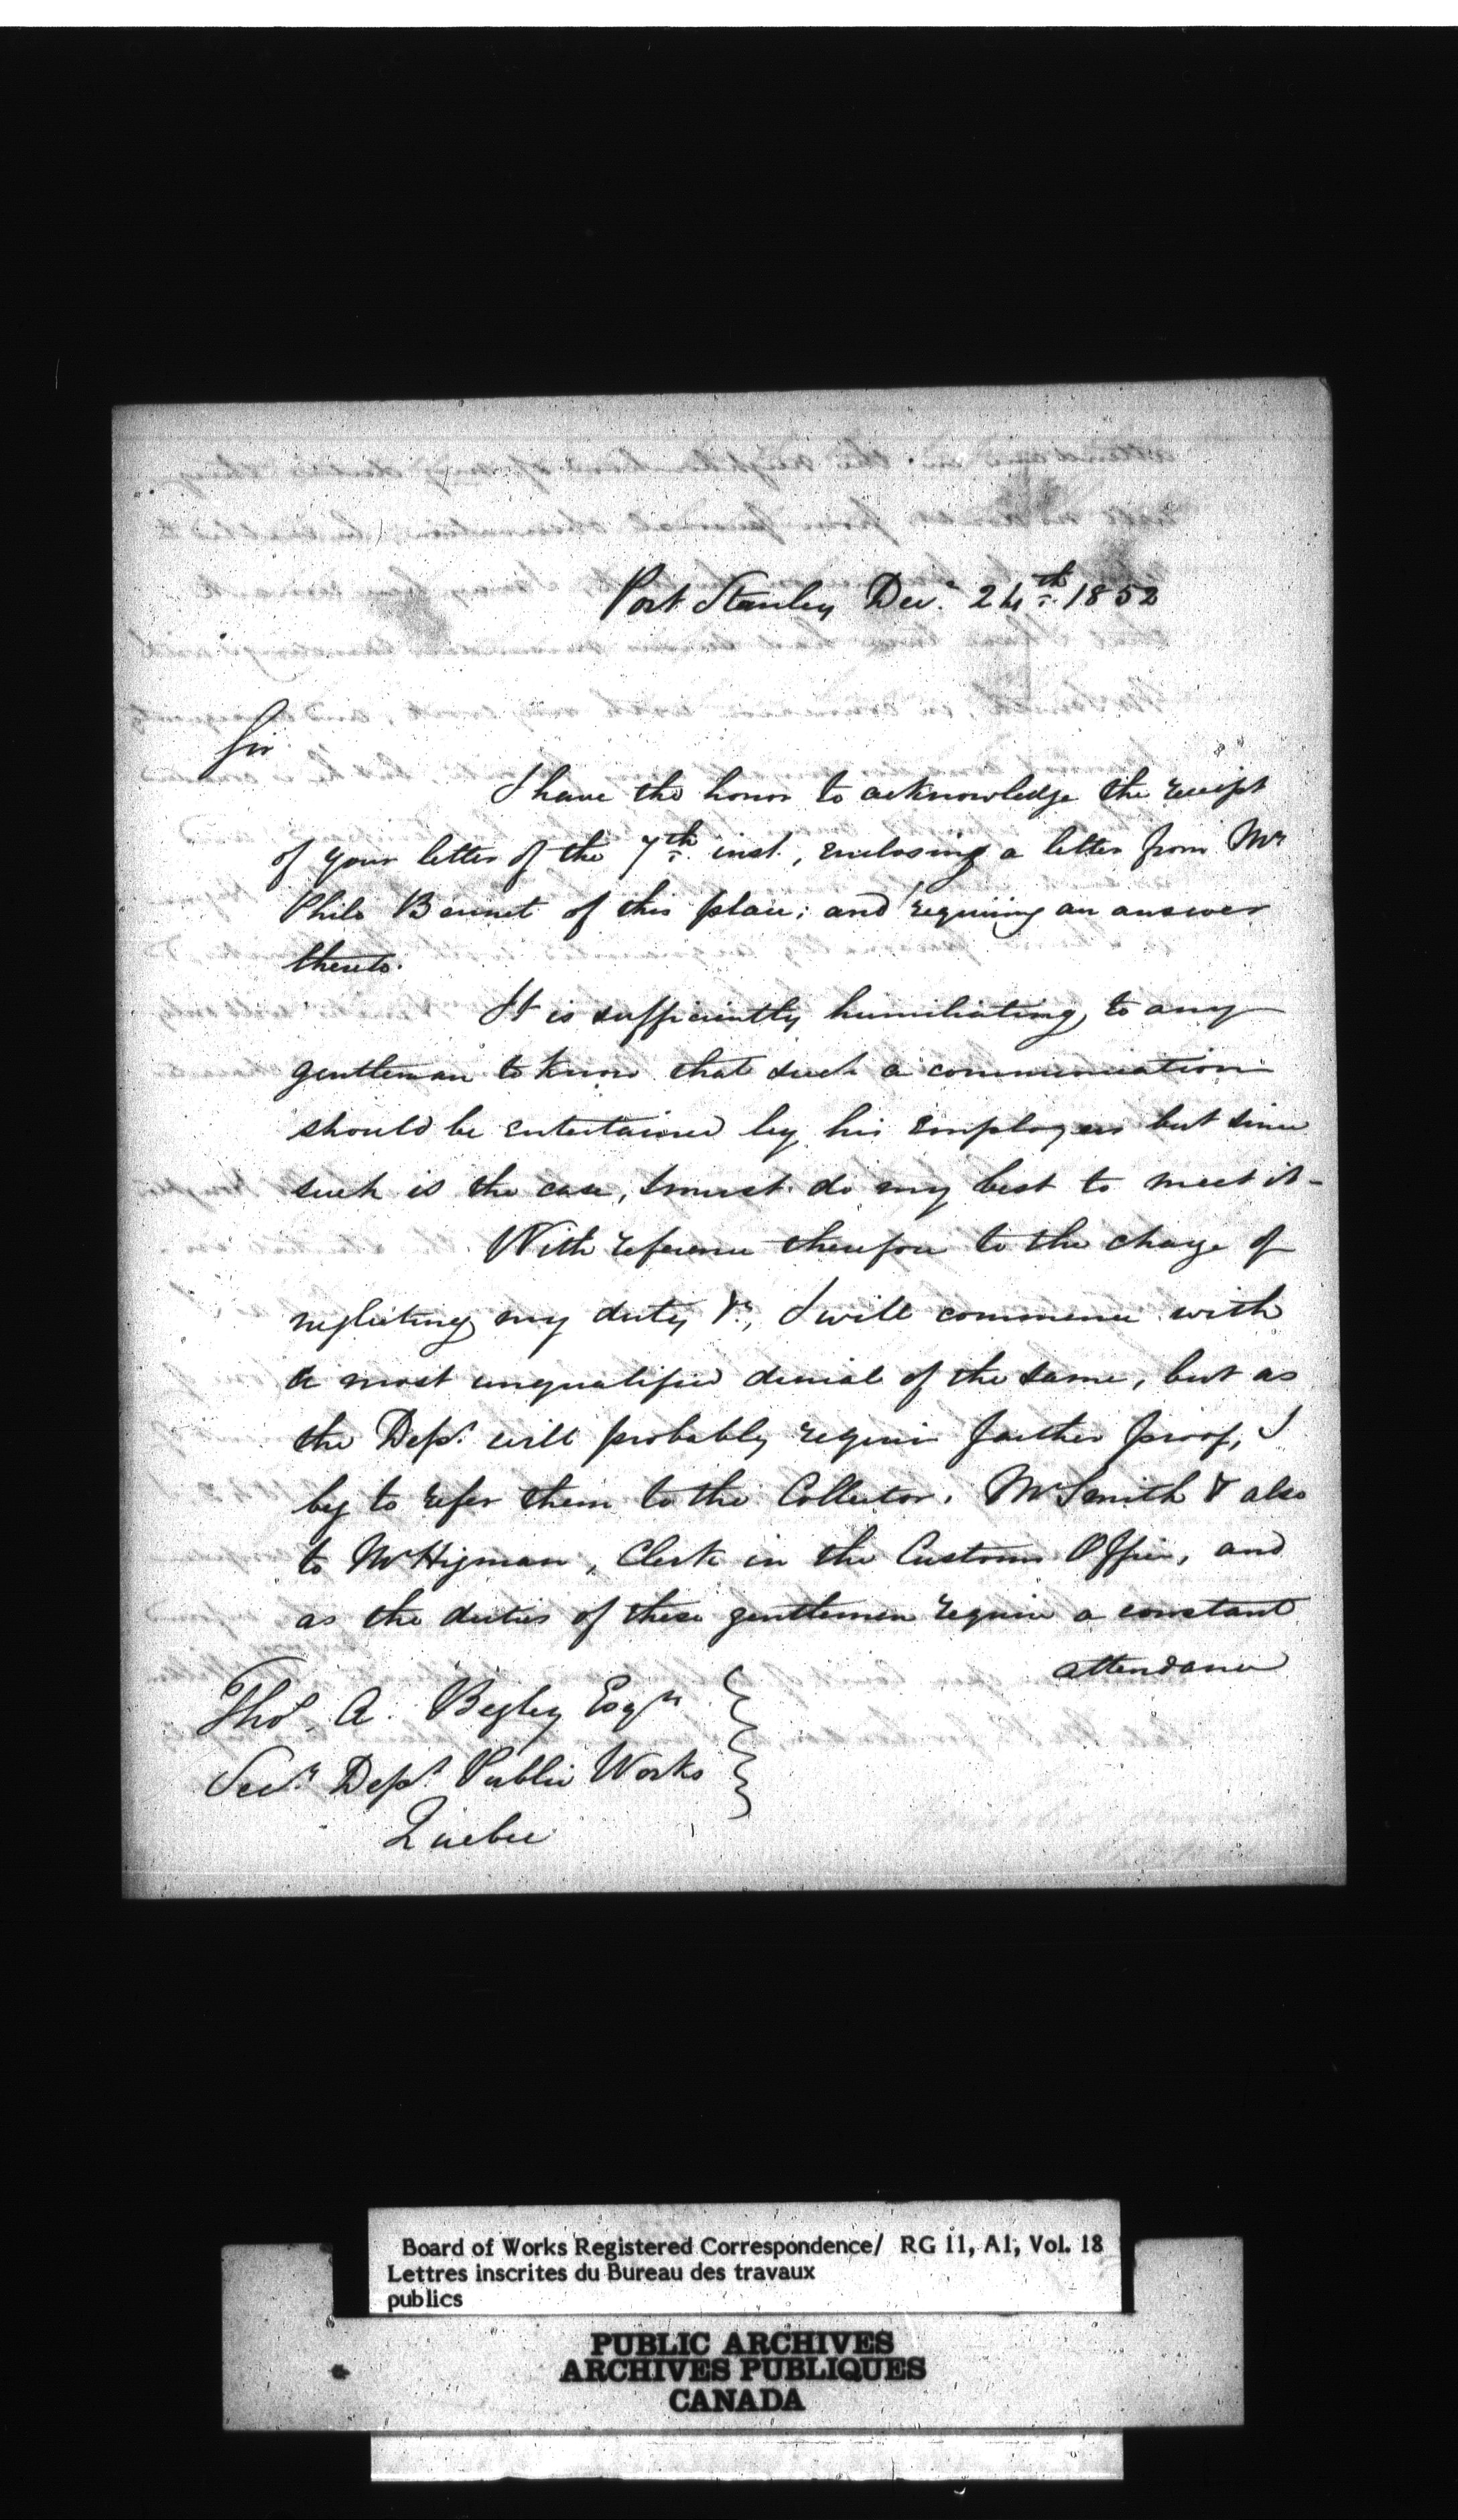 Port Stanley Decr. 24th. 1852
Sir
I have the honor to acknowledge the receipt
of your letter of the 7th. inst., enclosing a letter from Mr
Philo Bennet of this place; and requiring an answer
thereto.
It is sufficiently humiliating to any
gentleman to know that such a communication
should be entertained by his employers but since
such is the case, I must do my best to meet it -
With reference therefore to the charge of
neglecting my duty &c., I will commence with
a most unqualified denial of the same, but as
the Dept. will probably require further proof, I
beg to refer them to the Collector. Mr Smith & also
to Mr Higman, Clerk in the Customs Office, and
as the duties of these gentlemen require a constant
attendance
Thos. A. Begley Esqr
Secy. Dept. Public Works
Quebec
Board of Works Registered Correspondence/ RG 11, A1, Vol. 18
Lettres inscrites du Bureau des travaux
publics
PUBLIC ARCHIVES
ARCHIVES PUBLIQUES
CANADA